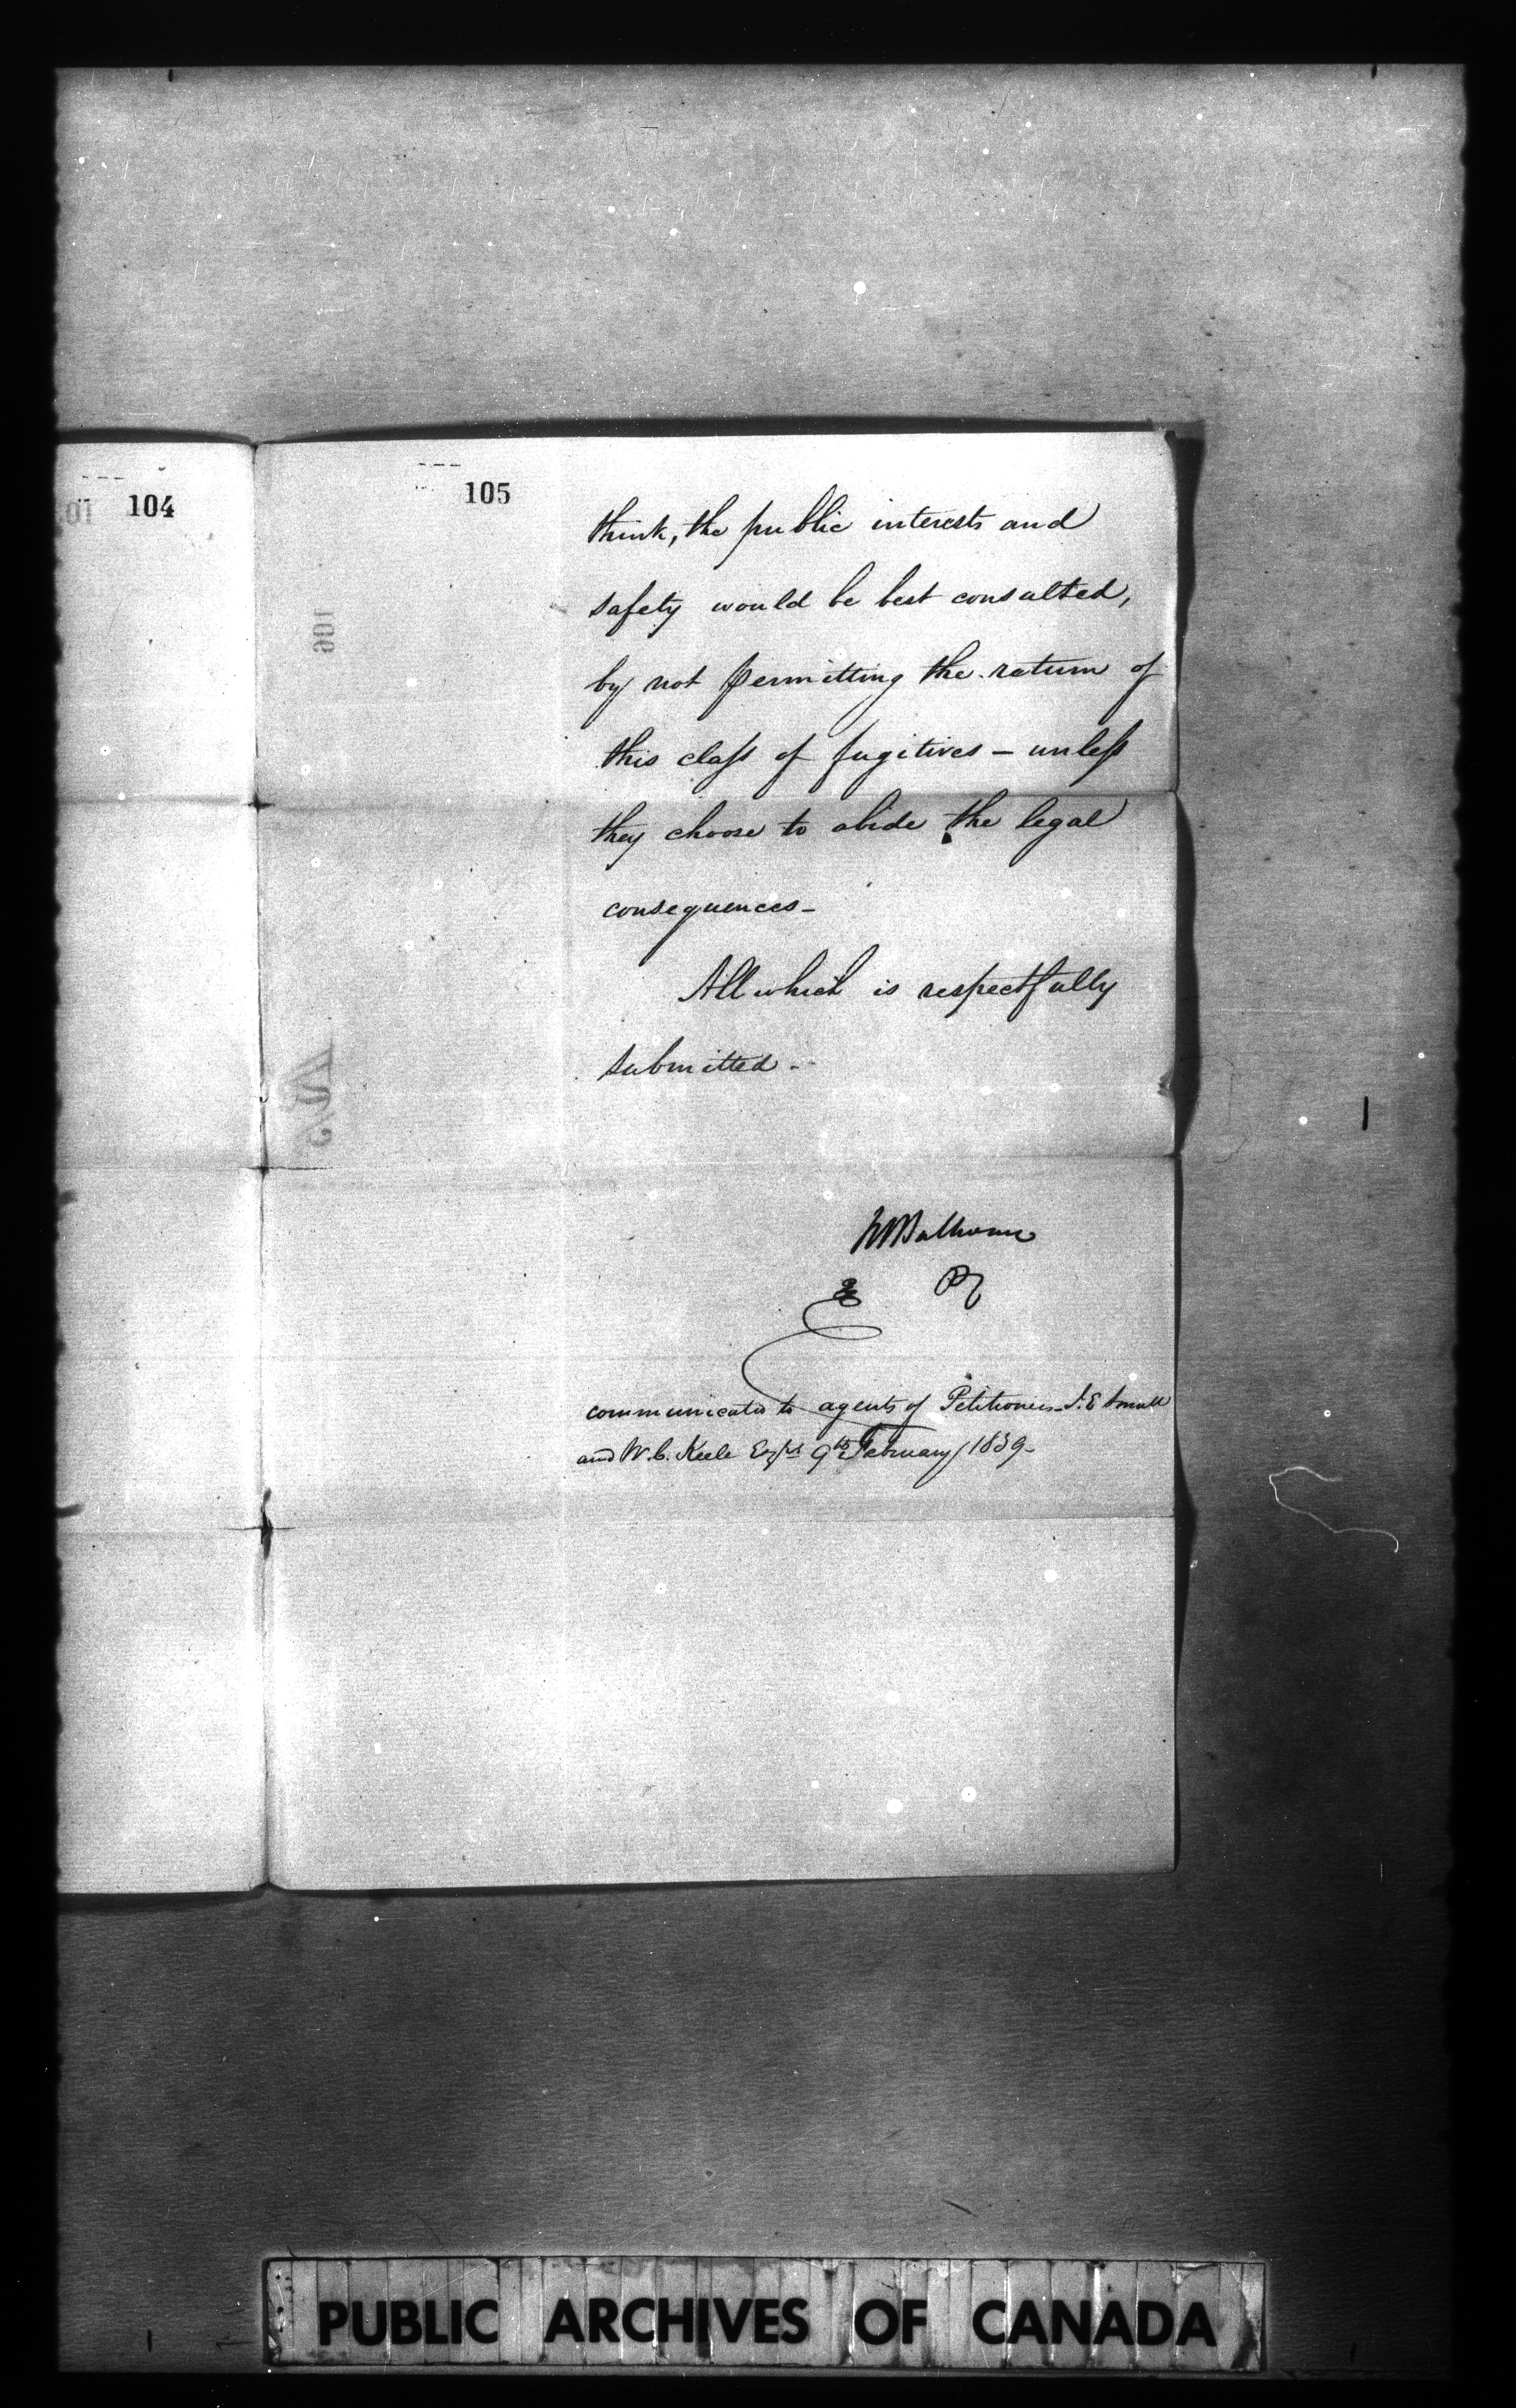 104
105
think, the public interests and
safety would be best consulted,
by not permitting the return of
this claſs of fugitives — unleſs
they choose to abide the legal
consequences —
All which is respectfully
submitted —
communicated to agents of Petitioners J. E Small
and W. C. Keele Esqrs 9th February 1839 —
106
PUBLIC ARCHIVES OF CANADA